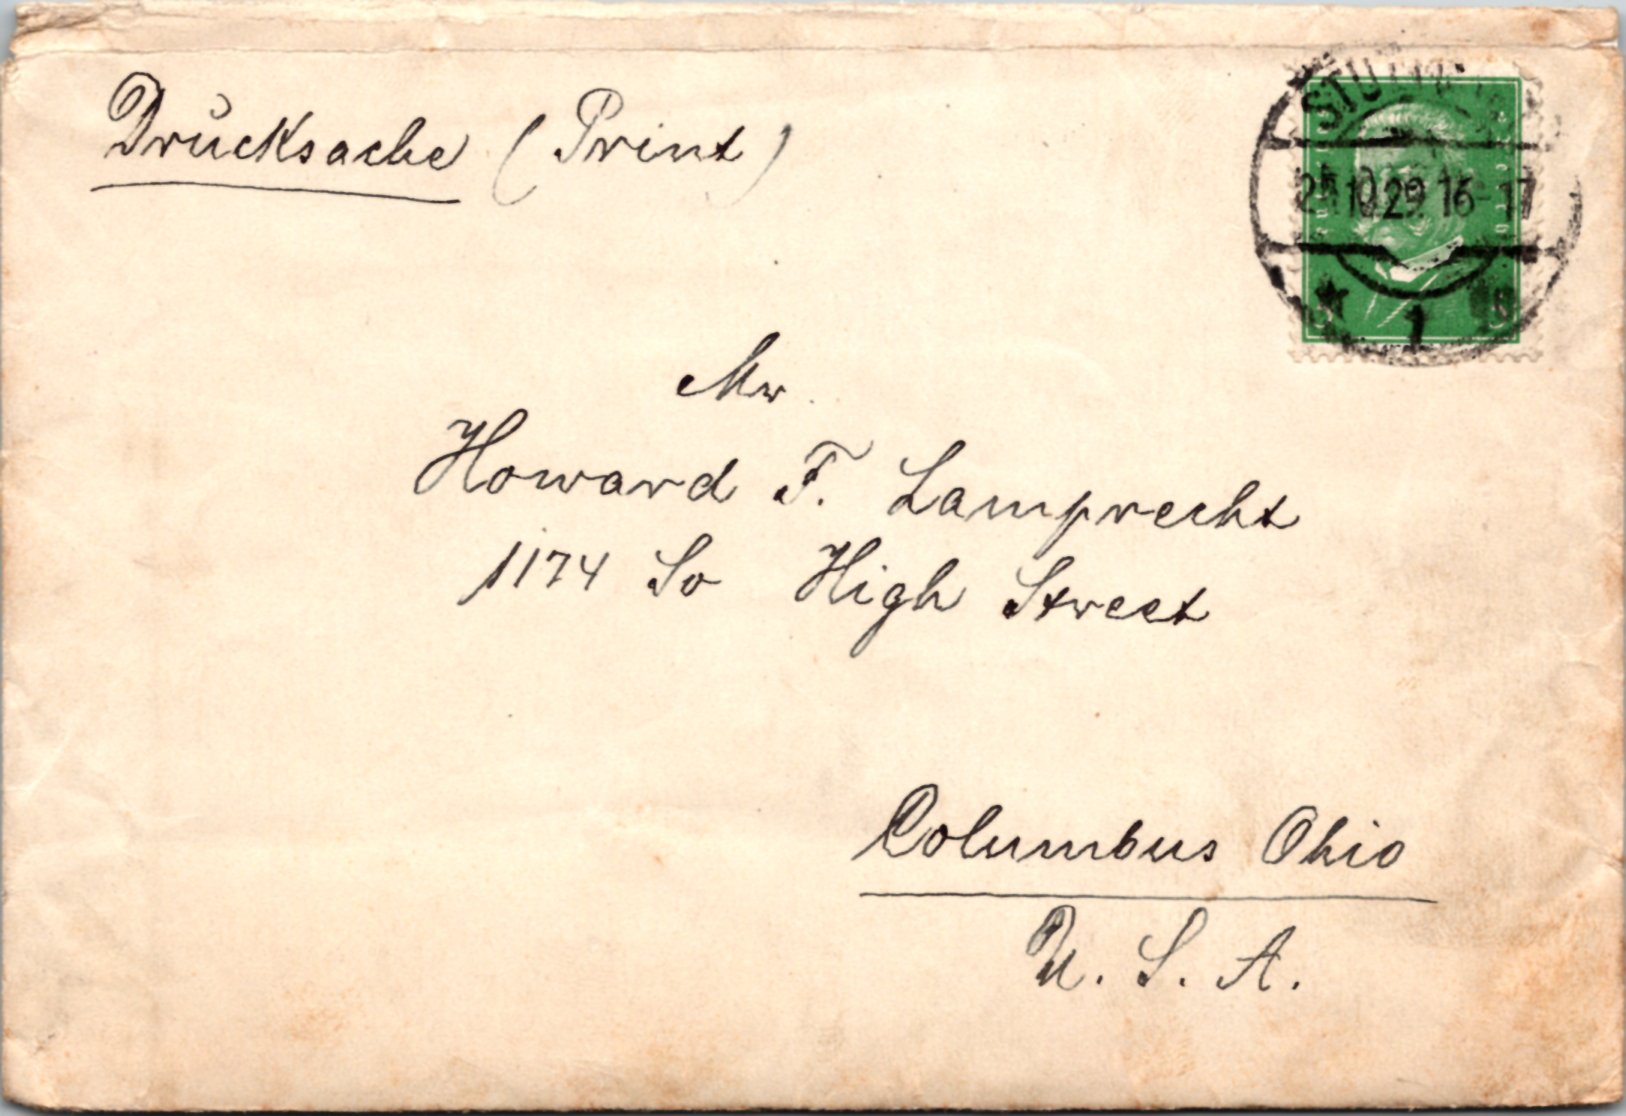 Drucksache (Print)
Mr
Howard F. Lamprecht
1174 So High Street
Columbus Ohio
U. S. A.
10.29 16-17
1